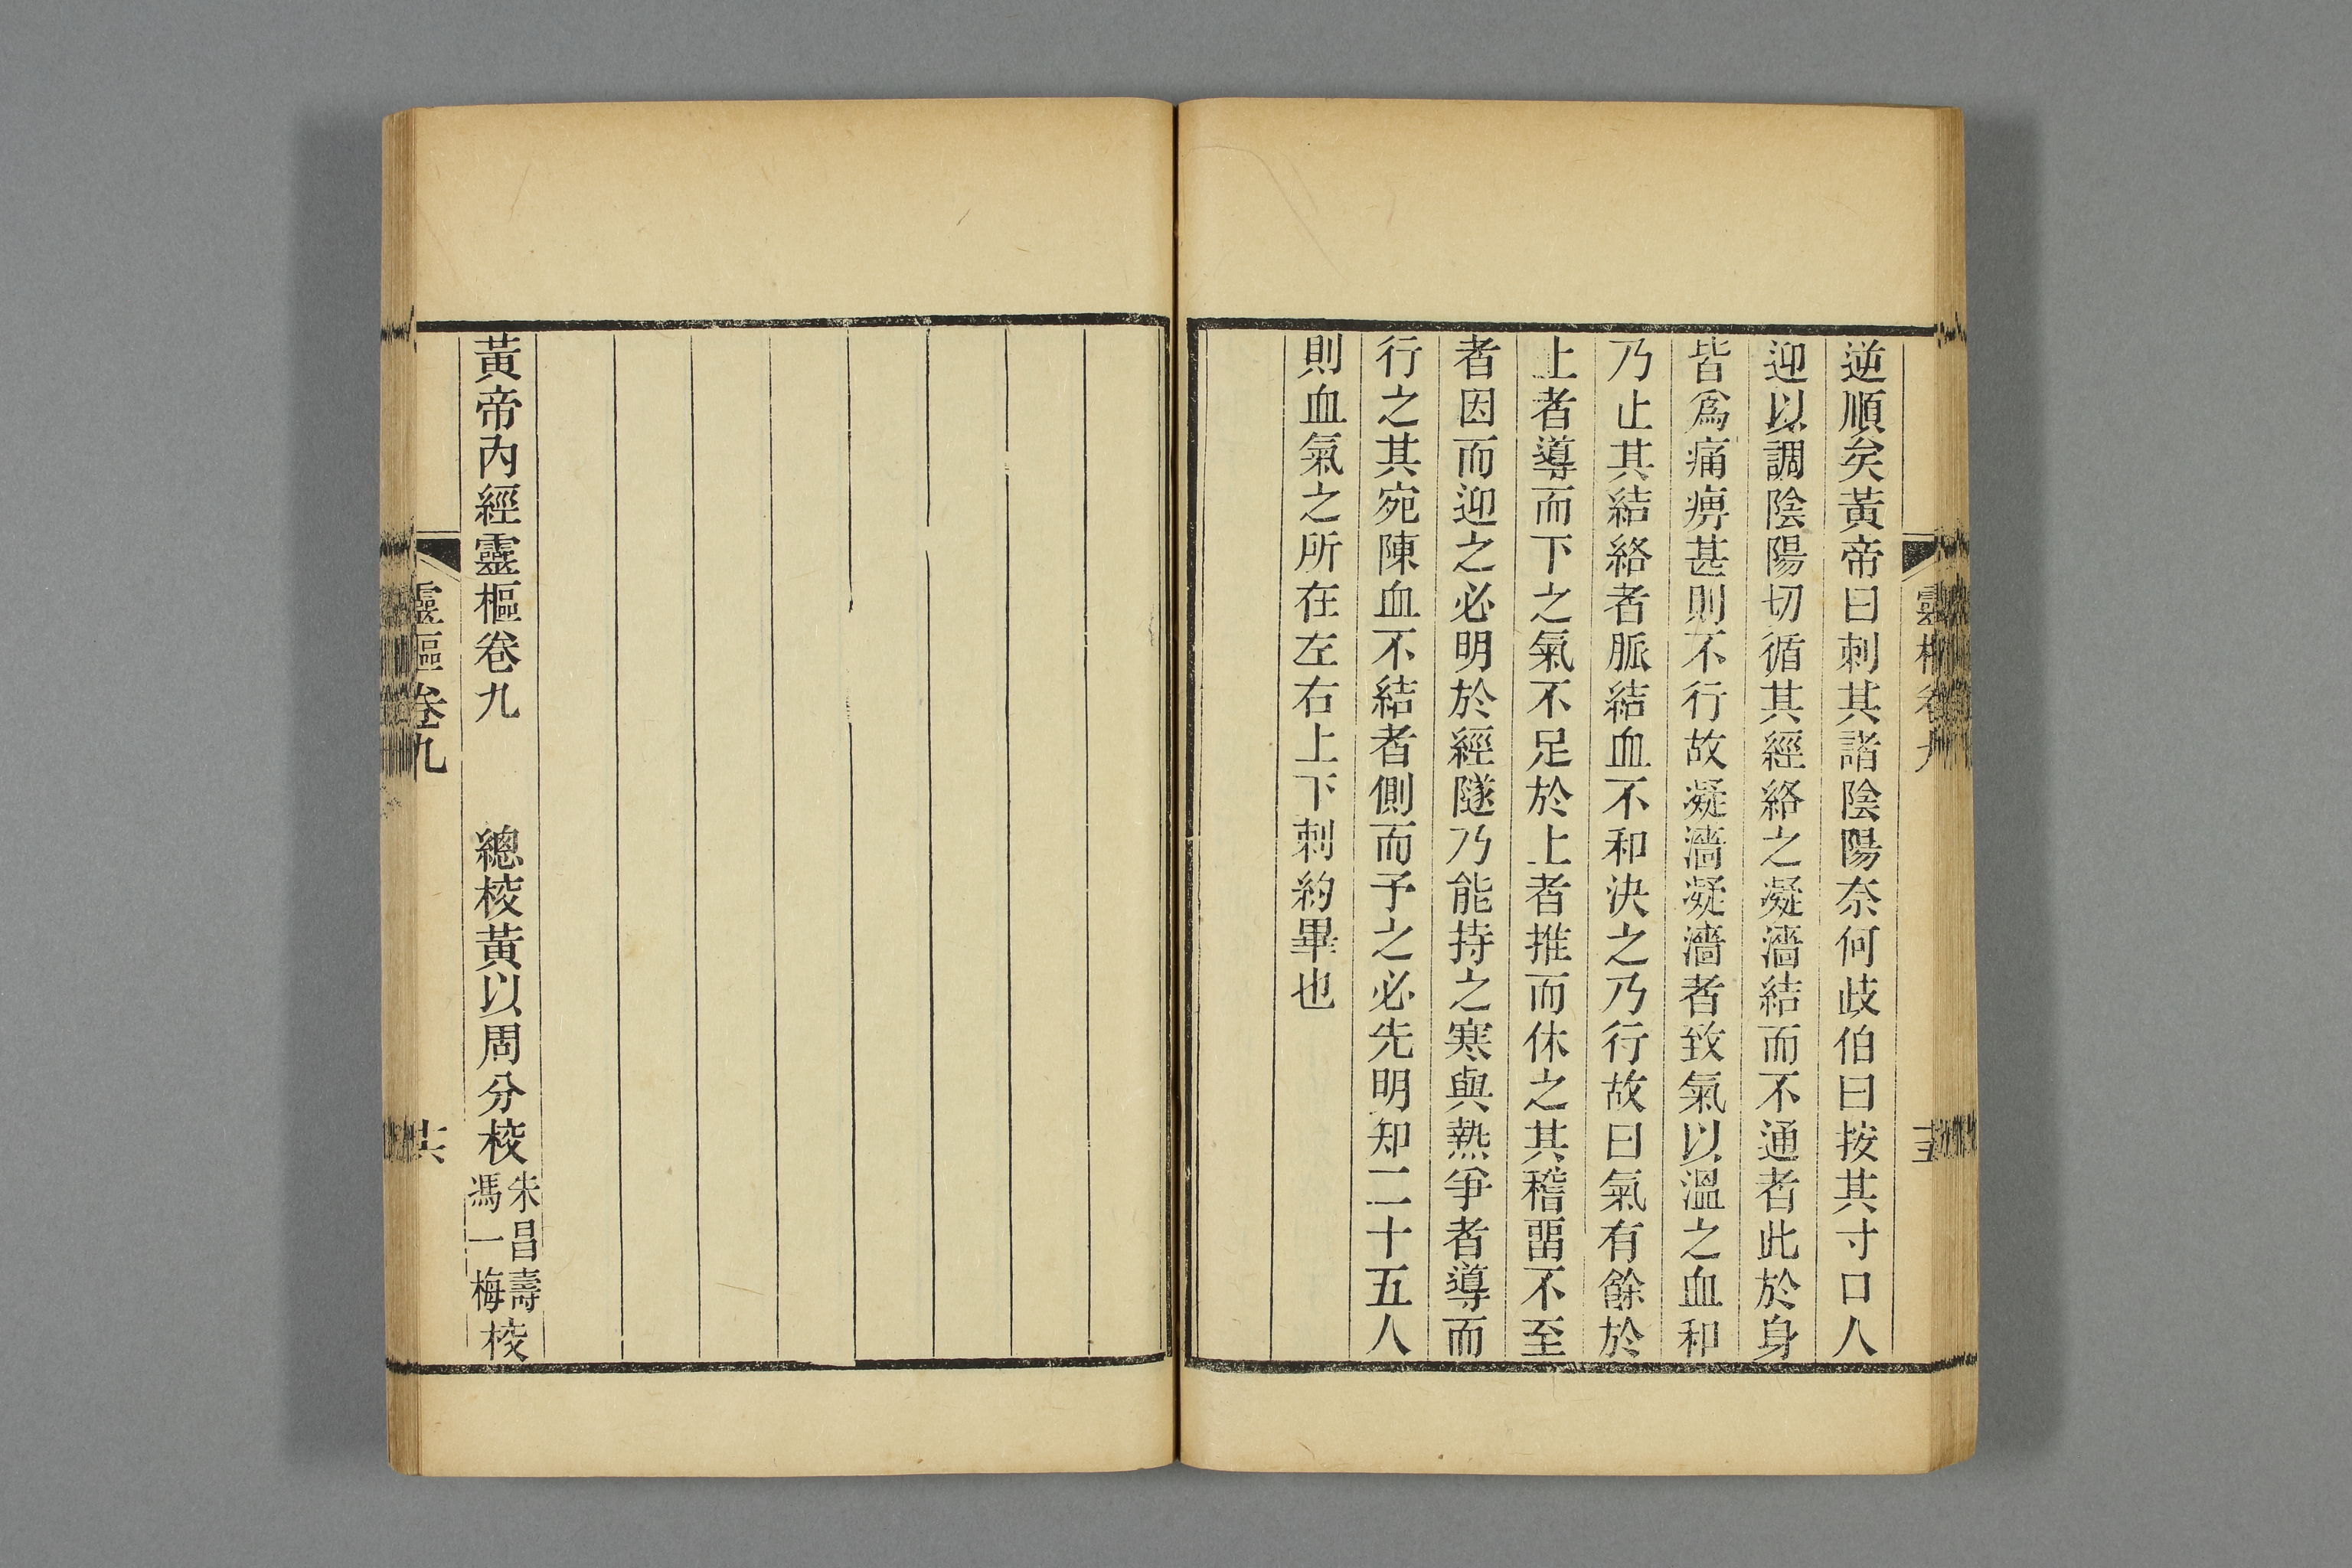 逆順矣黃帝曰刺其諸陰陽奈何歧伯曰按其寸口人
迎以調陰陽切循其經絡之凝濇結而不通者此於身
皆爲痛痹甚則不行故凝濇凝濇者致氣以溫之血和
乃止其結絡者脈結血不和決之乃行故曰氣有餘於
上者導而下之氣不足於上者推而休之其稽畱不至
者因而迎之必明於經隧乃能持之寒與熱爭者導而
行之其宛陳血不結者側而予之必先明知二十五人
則血氣之所在左右上下刺約畢也
黃帝內經靈樞卷九 總校黃以周分校朱昌壽馮一梅校
靈樞卷九